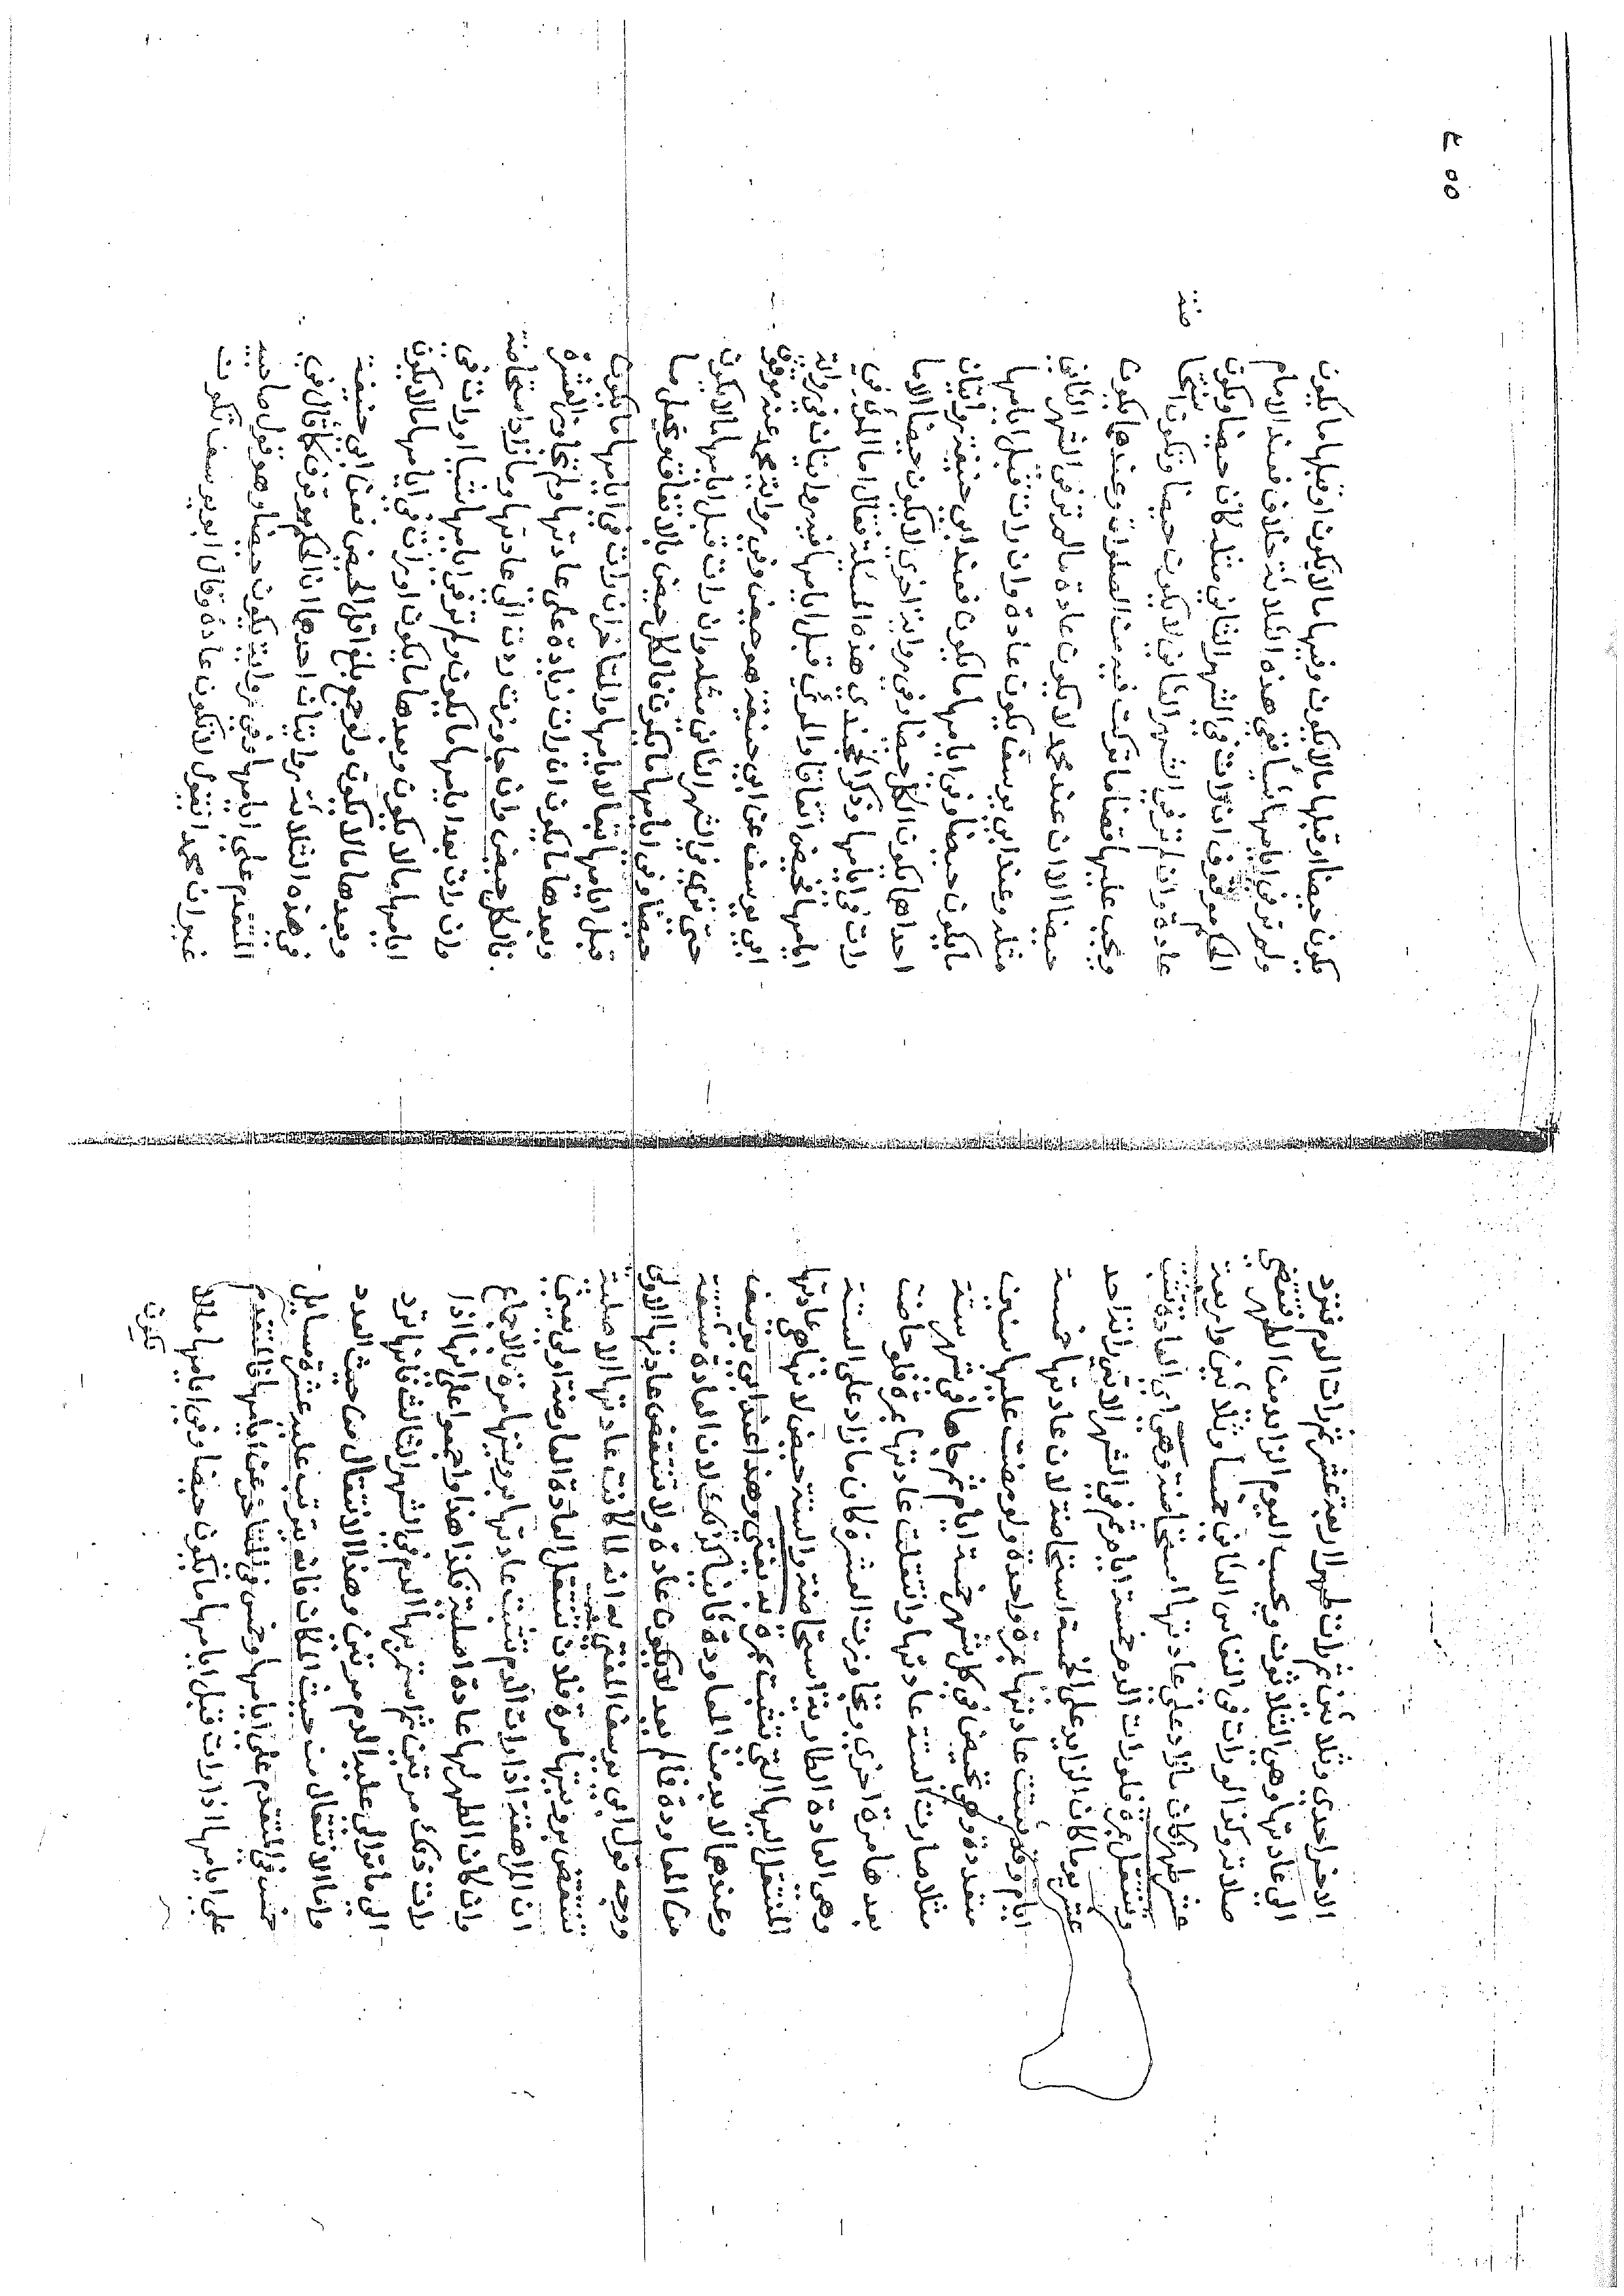 الاخر احدي وثلاثين ثم رات طهرا اربعة عشر ثم رات الدم فترد
الى عادتها وهي الثلاثون ويحسب اليوم الزايد من الطهر فتقضي
صلاته وكذا لو رات في النفاس الثاني خمسا وثلاثين واربعة
عشر طهرا كان ما زاد على عادتها استحاضة وهي اي العادة تثبت
وتنتقل بمرة فلو رات الدم خمسة ايام ثم في الشهر الاتي رات احد
عشر يوما كان الزايد على الخمسة استحاضة لان عادتها خمسة
ايام وقد ثبتت عادتها بمرة واحدة ولو مضت عليها سنين
متعددة وهي تحيض في كل شهر خمسة ايام ثم جاها في شهر ستة
مثلا صارت الستة عادتها وانتقلت عادتها بمرة فلو حاضت
بعدها مرة اخري وتجاوزت العشرة كان ما زاد على الستة
وهي العادة الطارية استحاضة والستة حيض لانها هي عادتها
المنتقل اليها التي تثبت بمرة به يفتي وهذا عند ابي يوسف
وعندهما لا بد من المعاودة ثانيا كذلك لان العادة مشتقة
من المعاودة فلم يعد لا يكون عادة ولا تنتقض عادتها الاولى
ووجه قول ابي يوسف المفتى به انه لما كانت عادتها الاصلية
تنتقض برويتها مرة فلان تنتقل العادة العارضة اولى يعني
ان المراهقة اذا رات الدم تثبت عادتها برويتها مرة بالاجماع
وان كان الطهر لها عادة اصلية فكذا هذا واجمعوا على انها اذا
رات ذلك مرتين ثم استمر بها الدم في الشهر الثالث فانها ترد
الى ما توالى عليه الدم مرتين وهذا الانتقال من حيث العدد
واما الانتقال من حيث المكان فانه يترتب عليه عشرة مسايل
خمس في المتقدم على ايامها وخمس في المتاخر عن ايامها فالمتقدم
على ايامها اذا رات قبل ايامها ما يكون حيضا وفي ايامها ما لا
يكون
٤٥٥
يكون حيضا او قبلها ما لا يكون وفيها ما لا يكون او قبلها ما يكون
ولم تر في ايامها شيأ ففي هذه الثلاثة خلاف فعند الامام
الحكم موقوف ان رات في الشهر الثاني مثله كان حيضا ويكون
عادة وان لم تر في الشهر الثاني لا يكون حيضا وتكون استحا
ضة
ويجب عليها قضا ما تركت فيه من الصلوات وعندهما يكون
حيضا الا ان عند محمد لا يكون عادة ما لم تر في الشهر الثاني
مثله وعند ابي يوسف يكون عادة وان رات قبل ايامها
ما يكون حيضا وفي ايامها ما يكون فعند ابي حنيفة روايتان
احداها يكون الكل حيضا وفي رواية اخري لا يكون حيضا الا ما
رات في ايامها وذكر الخجندي هذه المسئلة فقال اما المرئي في
ايامها فحيض اتفاقا والمرئي قبل ايامها فيه روايتان في رواية
ابي يوسف عن ابي حنيفة هو حيض وفي رواية محمد عنه موقوف
حتى تري في الشهر الثاني مثله وان رات قبل ايامها ما لا يكون
حيضا وفي ايامها ما يكون فالكل حيض بالاتفاق ويجعل ما
قبل ايامها تبعا لايامها والمتاخر ان رات في ايامها ما يكون
وبعدها ما يكون ان رات زيادة على عادتها ولم تجاوز العشرة
فالكل حيض وان جاوزت ردت الى عادتها وما زاد استحاضة
وان رات بعد ايامها ما يكون ولم تر في ايامها شيا او رات في
ايامها ما لا يكون وبعدها ما يكون او رات في ايامها ما لا يكون
وبعدها ما لا يكون ولو جمع بلغ اقل الحيض فعن ابي حنيفة
في هذه الثلاثة روايتان احدها ان الحكم موقوف كما قال في
المتقدم على ايامها وفي رواية يكون حيضا وهو قول صاحبيه
غير ان محمد ايقول لا تكون عادة وقال ابو يوسف تكون